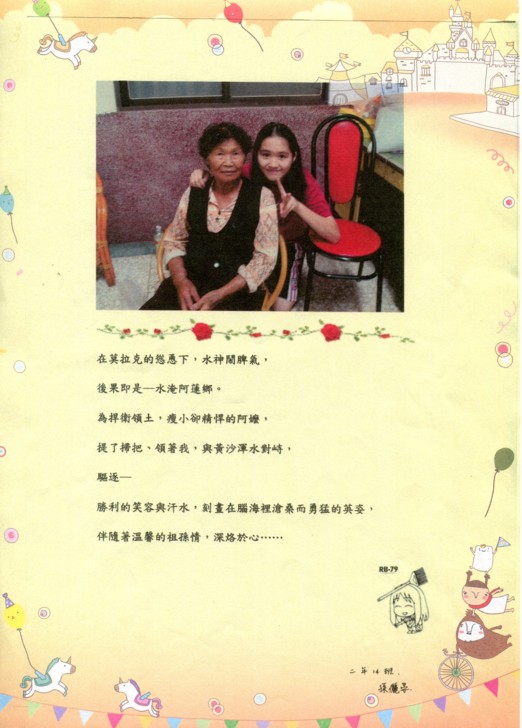 在莫拉克的慫恿下，水神鬧脾氣，
後果即是—水淹阿蓮鄉。
為捍衛領土，瘦小卻精悍的阿嬤，
提了掃把、領著我，與黃沙渾水對峙，
驅逐—
勝利的笑容與汗水，刻畫在腦海裡滄桑而勇猛的英姿，
伴隨著溫馨的祖孫情，深烙於心……
RB-79
二年14班